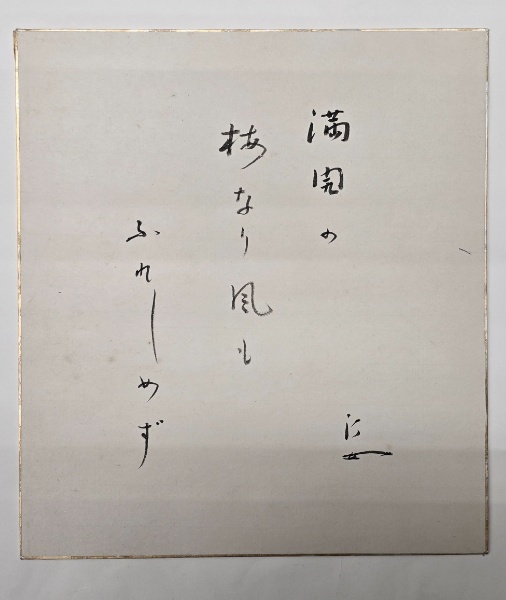 満開の
梅なり風も
ふれしめず